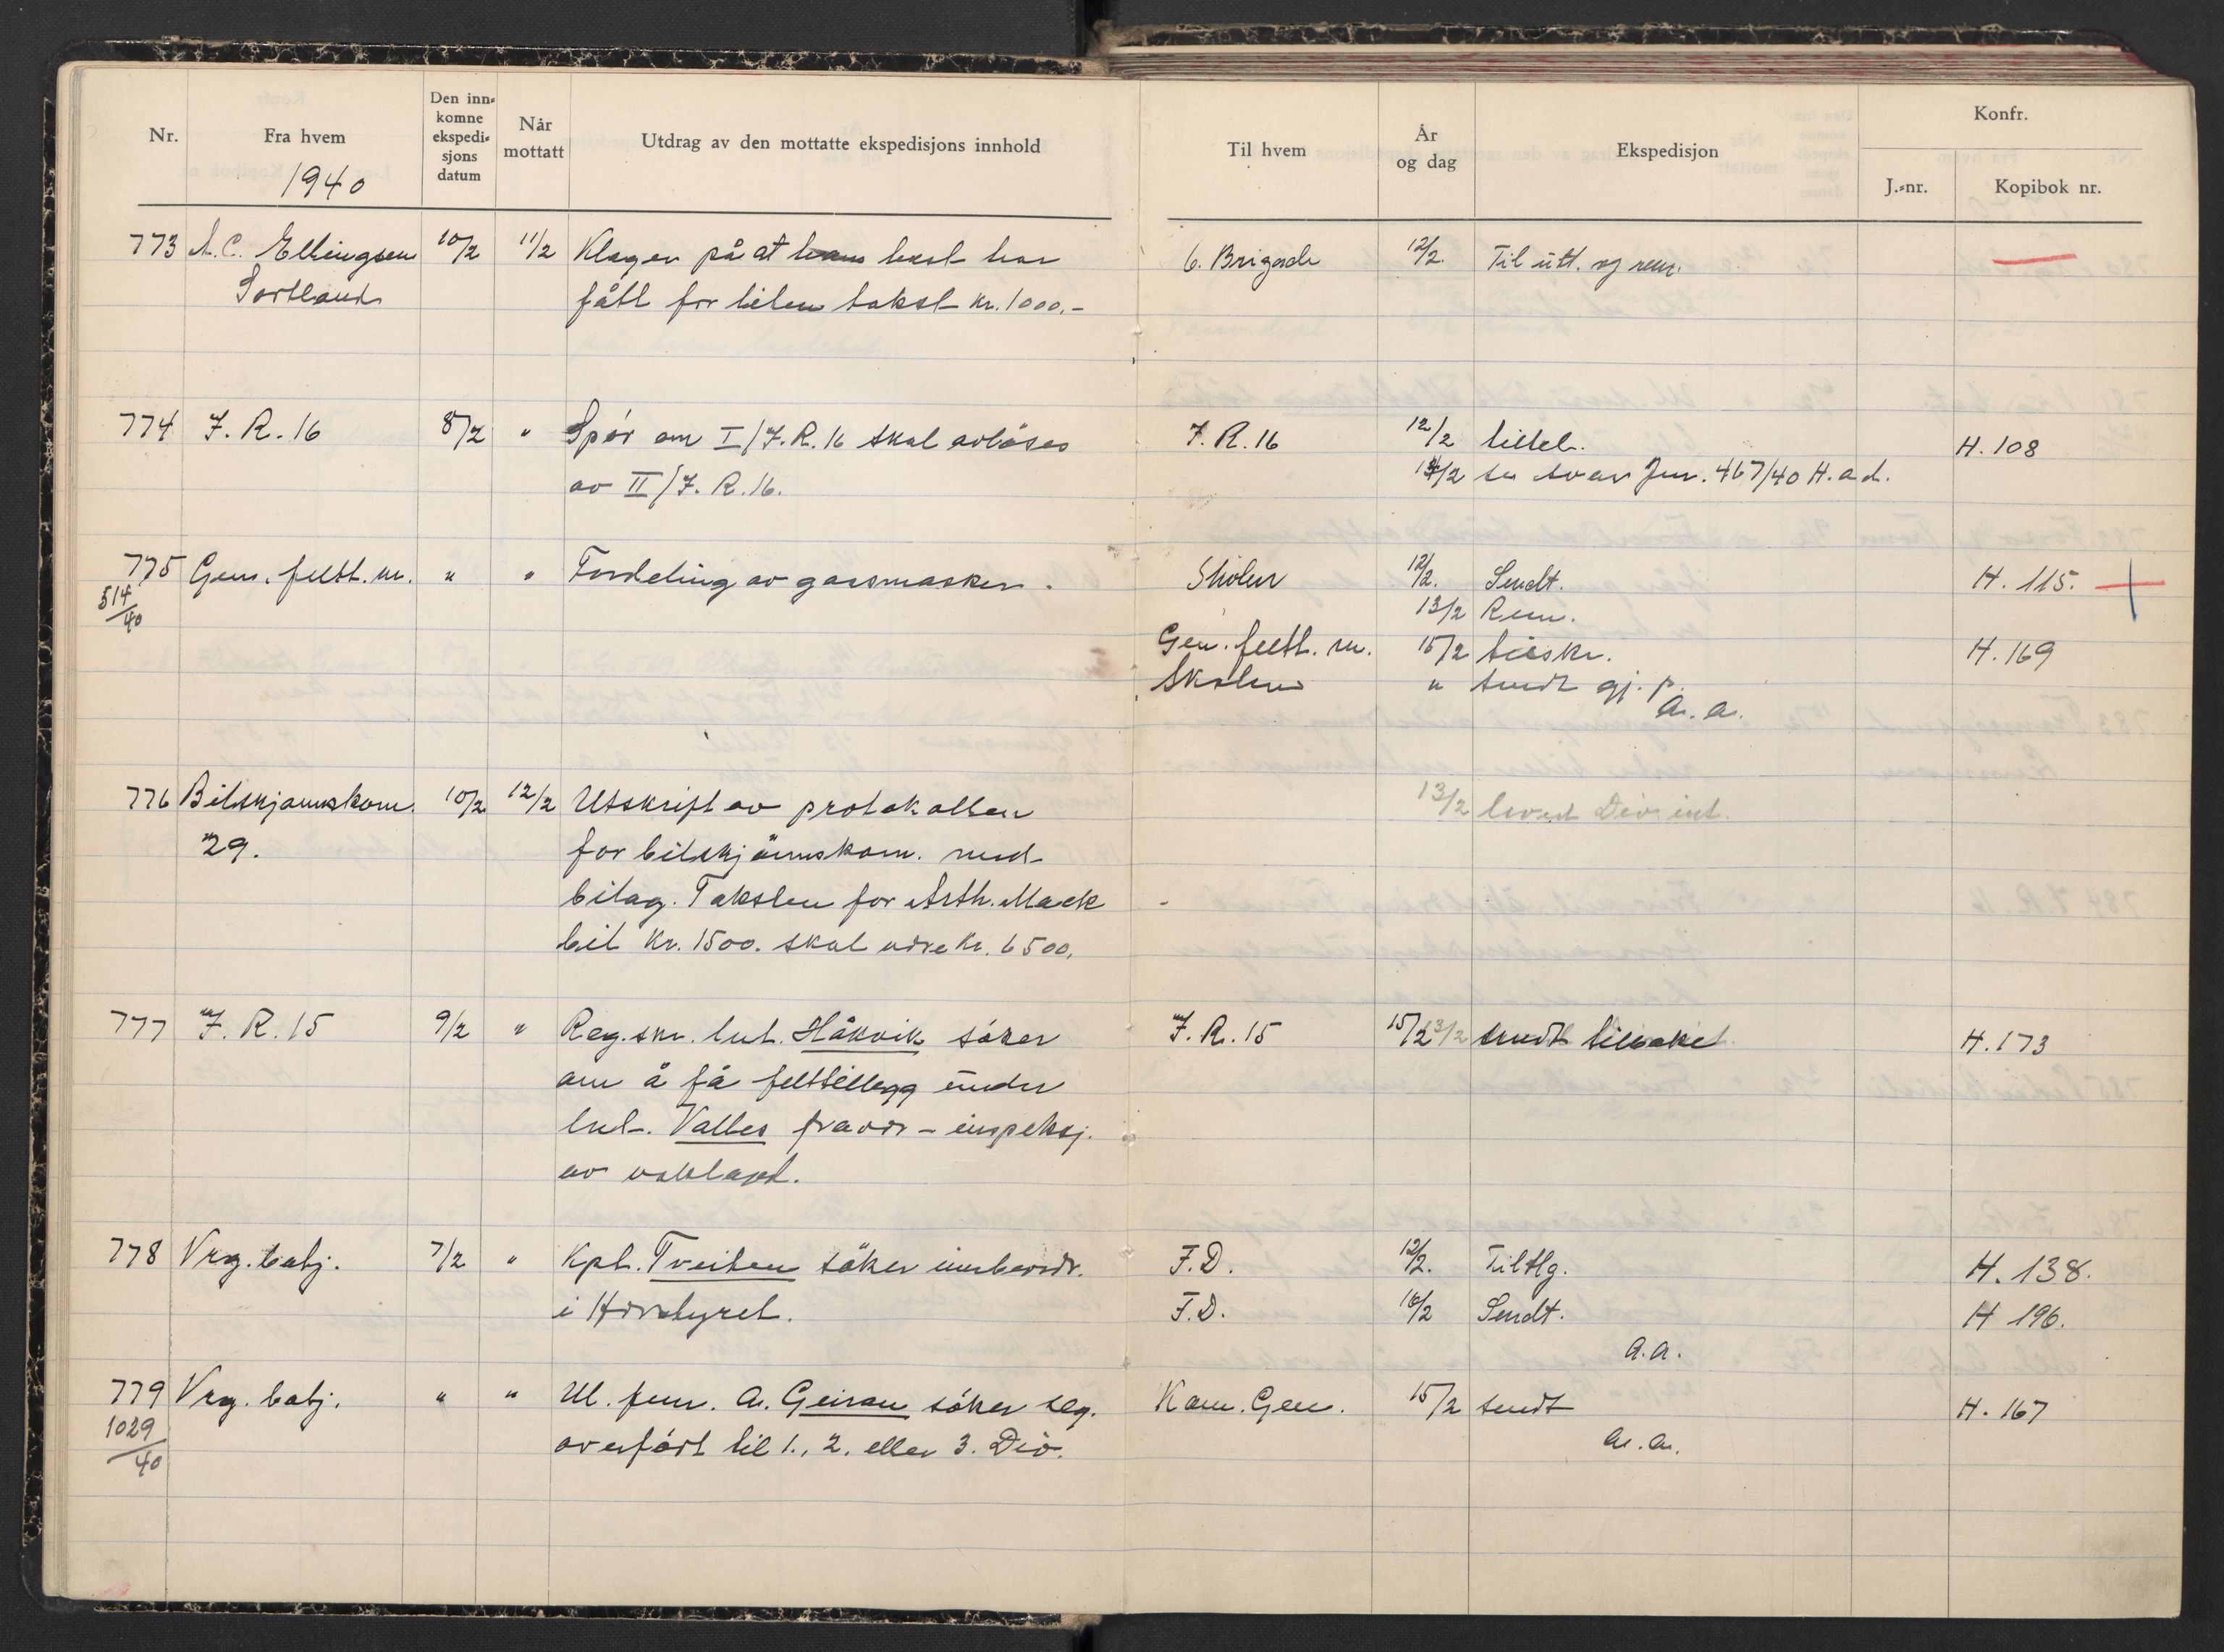 Nr.
Fra hvem
Den inn-
komne
ekspedi-
sjons
datum
Når
mottatt
Utdrag av den mottatte ekspedisjons innhold
Til hvem
År
og dag
Ekspedisjon
Konfr.
J.-nr.
Kopibok nr.
1940
773 A.C. Ellingsen 10/2 11/2 Klager på at hest har 6. Brigade 12/2. Til utt. og
Sortland fått for liten takst kr. 1000.-
774 I.R. 16 8/2 " Spør om I/I.R. 16 skal avløses I.R. 16 12/2 H. 108
av II/I.R. 16. 12/2 se svar Jnr. 467/40 H.a.d.
775 Gen. feltt.m. " " Fordeling av gassmasker. Skolen 12/2. Sendt. H. 115.
514/40 13/2 Rem.
Gen. feltt. m. 15/2 tilskr. H. 169
Skolen " sendt gj. p.
a. a.
776 Bilskjønnskom. 10/2 12/2 Utskrift av protokollen 13/2 levert Div. int.
29. for bilskjønnskom. med
bilag. Taksten for Arth. Mack
bil kr. 1500. skal være kr. 6500.
777 I.R. 15 9/2 " Reg.skr. lut. Håkvik søker I.R. 15 15/2 13/2 sendt tilbake H. 173
om å få felttillegg under
lut. Valles fravær - inspeksj.
av
778 Vrg. babj. 7/2 " Kpt. Tveiten søker innbeordr. F.D. 12/2. Tiltlg. H. 138.
i Hirstyret. F.D. 16/2 Sendt. H 196.
a.a.
779 Vrg. babj. " " Ul. fenr. A. Geiran søker seg Kom. Gen. 15/2 sendt H. 167
1029/40 overført til 1., 2. eller 3. Div. a.a.